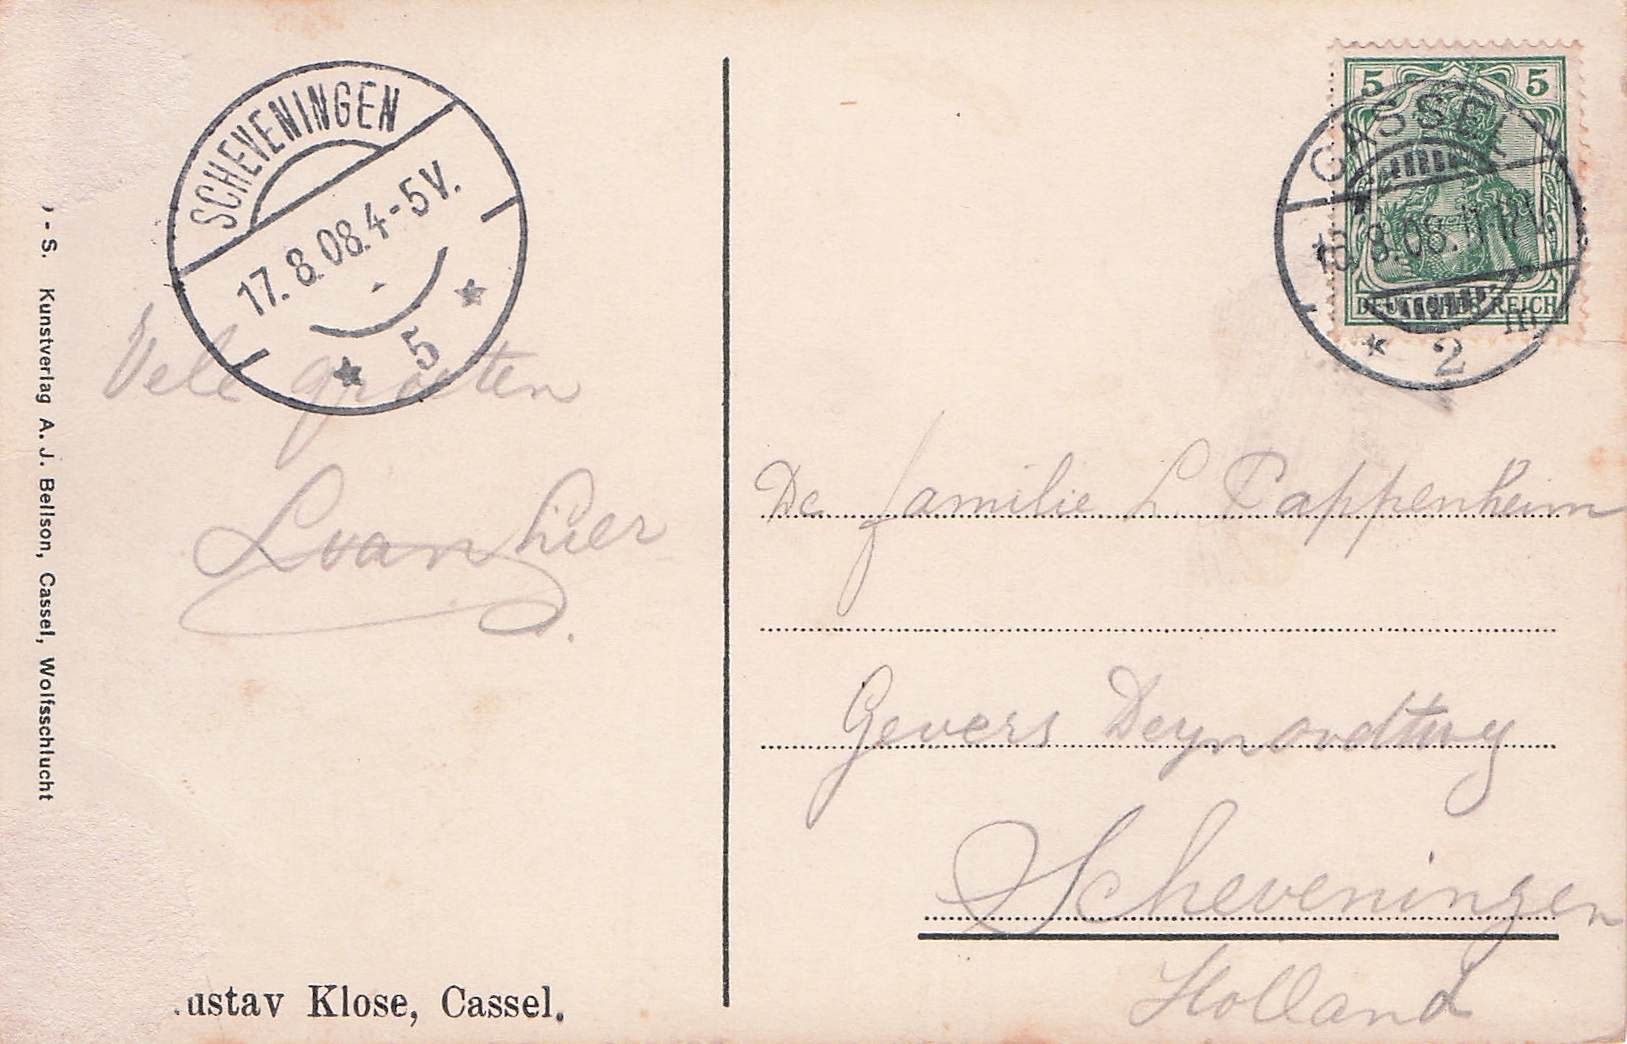 SCHEVENINGEN
17. 8. 08. 4-5 V.
5
Vele groeten
L van Lier
- S. Kunstverlag A. J. Bellson, Cassel, Wolfsschlucht
ustav Klose, Cassel.
5 5
DEUTSCHES REICH
CASSEL
8.08.
2
De familie L. Pappenheim
Gevers Deynoodtweg
Scheveningen
Holland